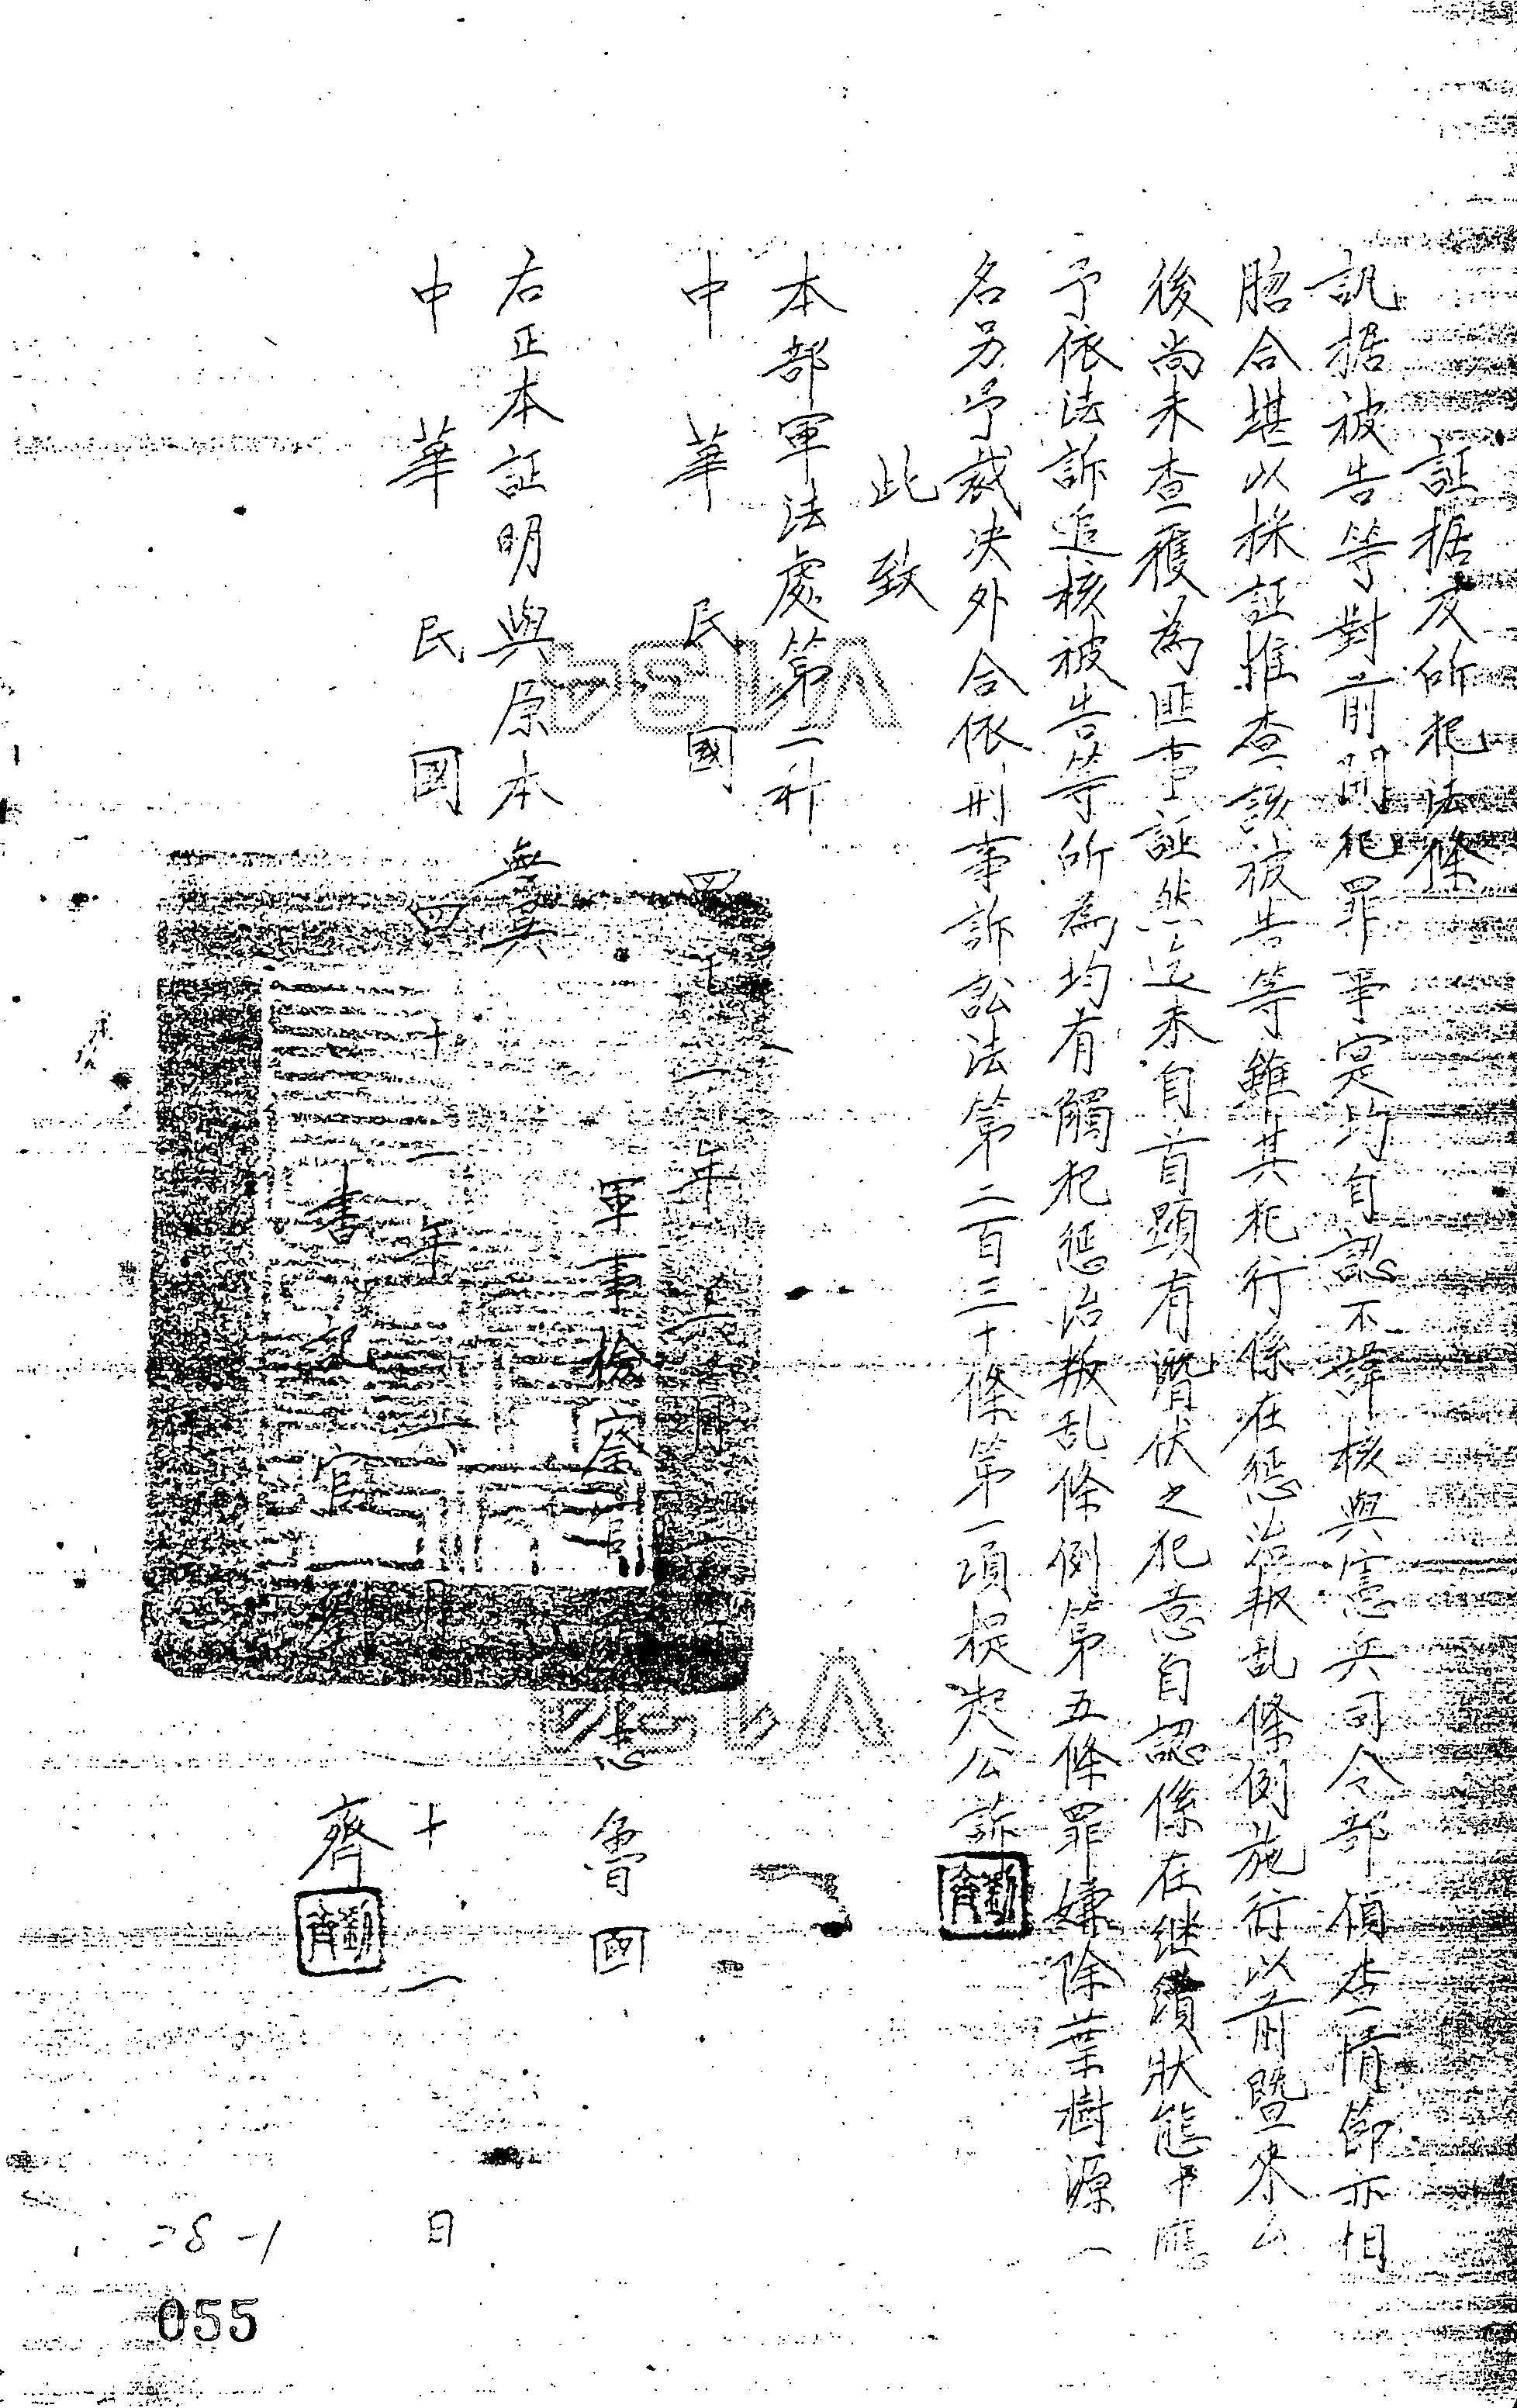 証据及所犯法條
訊据被告等對前開犯罪事実均自認不諱核與憲兵司令部偵查情節亦相
脗合堪以採証推查該被告等雖其犯行係在懲治叛乱條例施行以前暨參加
後尚未查獲為匪事証然迄未自首顕有潛伏之犯意自認係在继續狀態中應
予依法訴追核被告等所為均有觸犯懲治叛乱條例第五條罪嫌除葉樹源一
名另予裁决外合依刑事訴訟法第二百三十條第一項提起公訴
此致
本部軍法處第二科
中華民國四十一年
軍事檢察官 魯國
右正本証明與原本無異
中華民國四十一年 月十一日
書記官劉齊
28-1
055